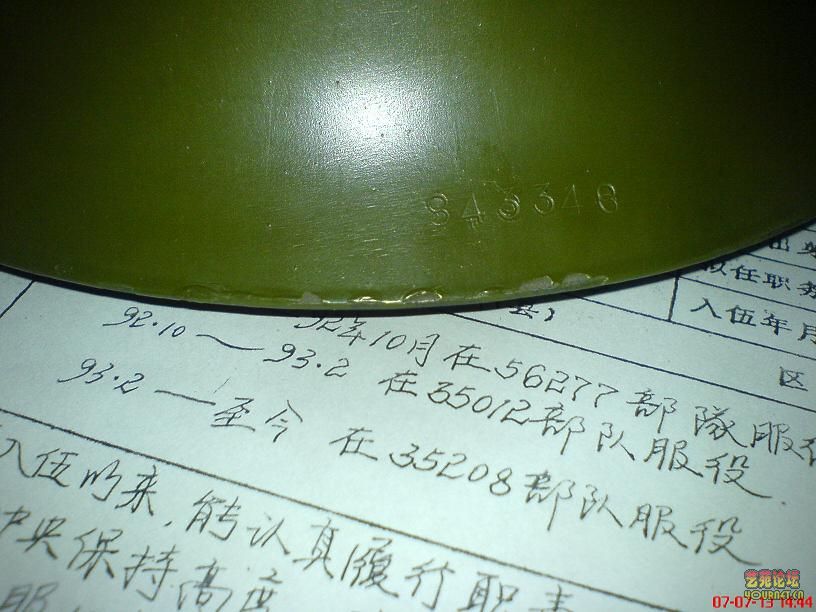 843346
出身
拟任职务
入伍年月
区
县）
92年10月在56277部隊服役
92.10～93.2 在35012部队服役
93.2—至今 在35208部队服役.
入伍以来，能认真履行职责
中央保持高度
服
艺苑论坛
YOURNET.CN
07-07-13 14:44